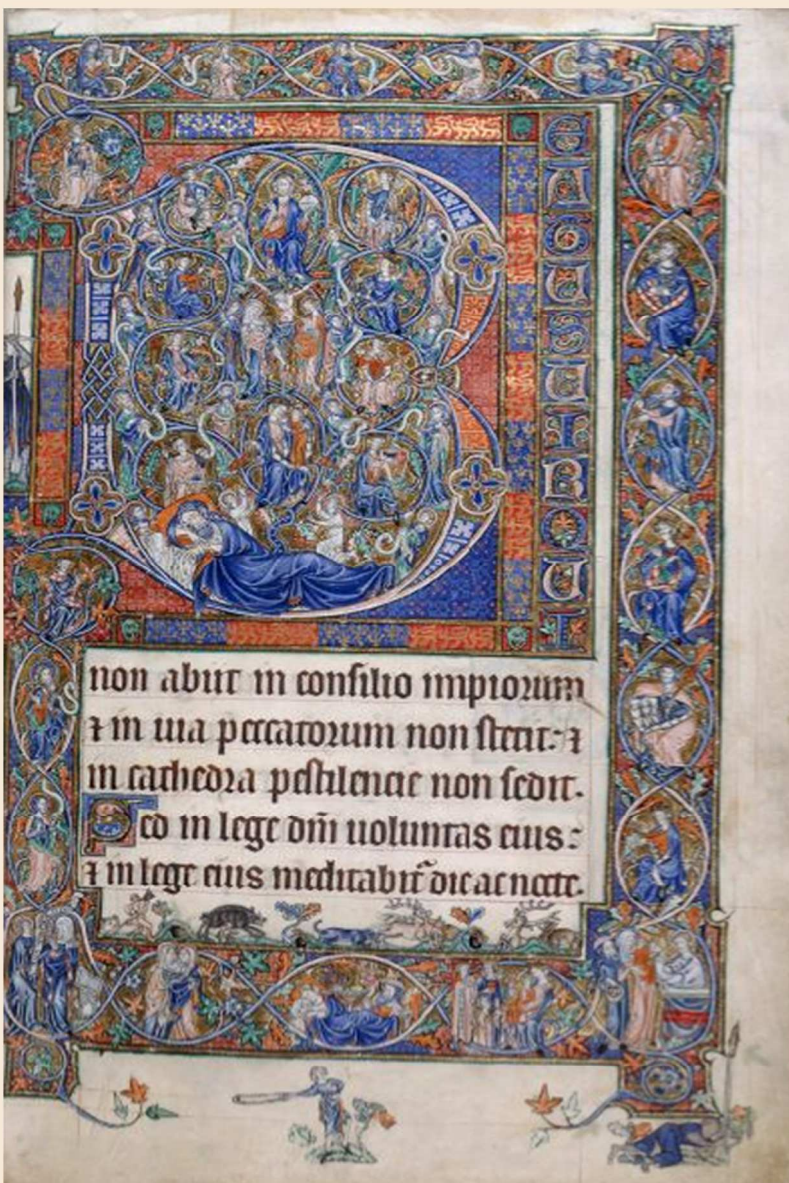 BEATUS UIR QUI
non abiit in consilio impiorum
⁊ in uia peccatorum non stetit: ⁊
in cathedra pestilencie non sedit.
Sed in lege dñi uoluntas eius:
⁊ in lege eius meditabit᷑ die ac nocte.